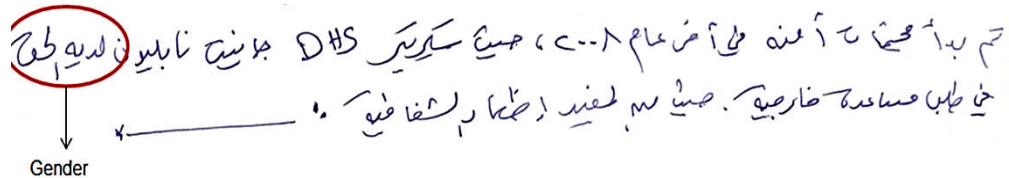 تم بدأ محتمات أمنه في أخر عام ٢٠٠٨، حيث سكرتير DHS جانيت نابليون لديه الحق
في طلب مساعدة خارجية. حيث من المفيد إظهار الشفافية.
Gender